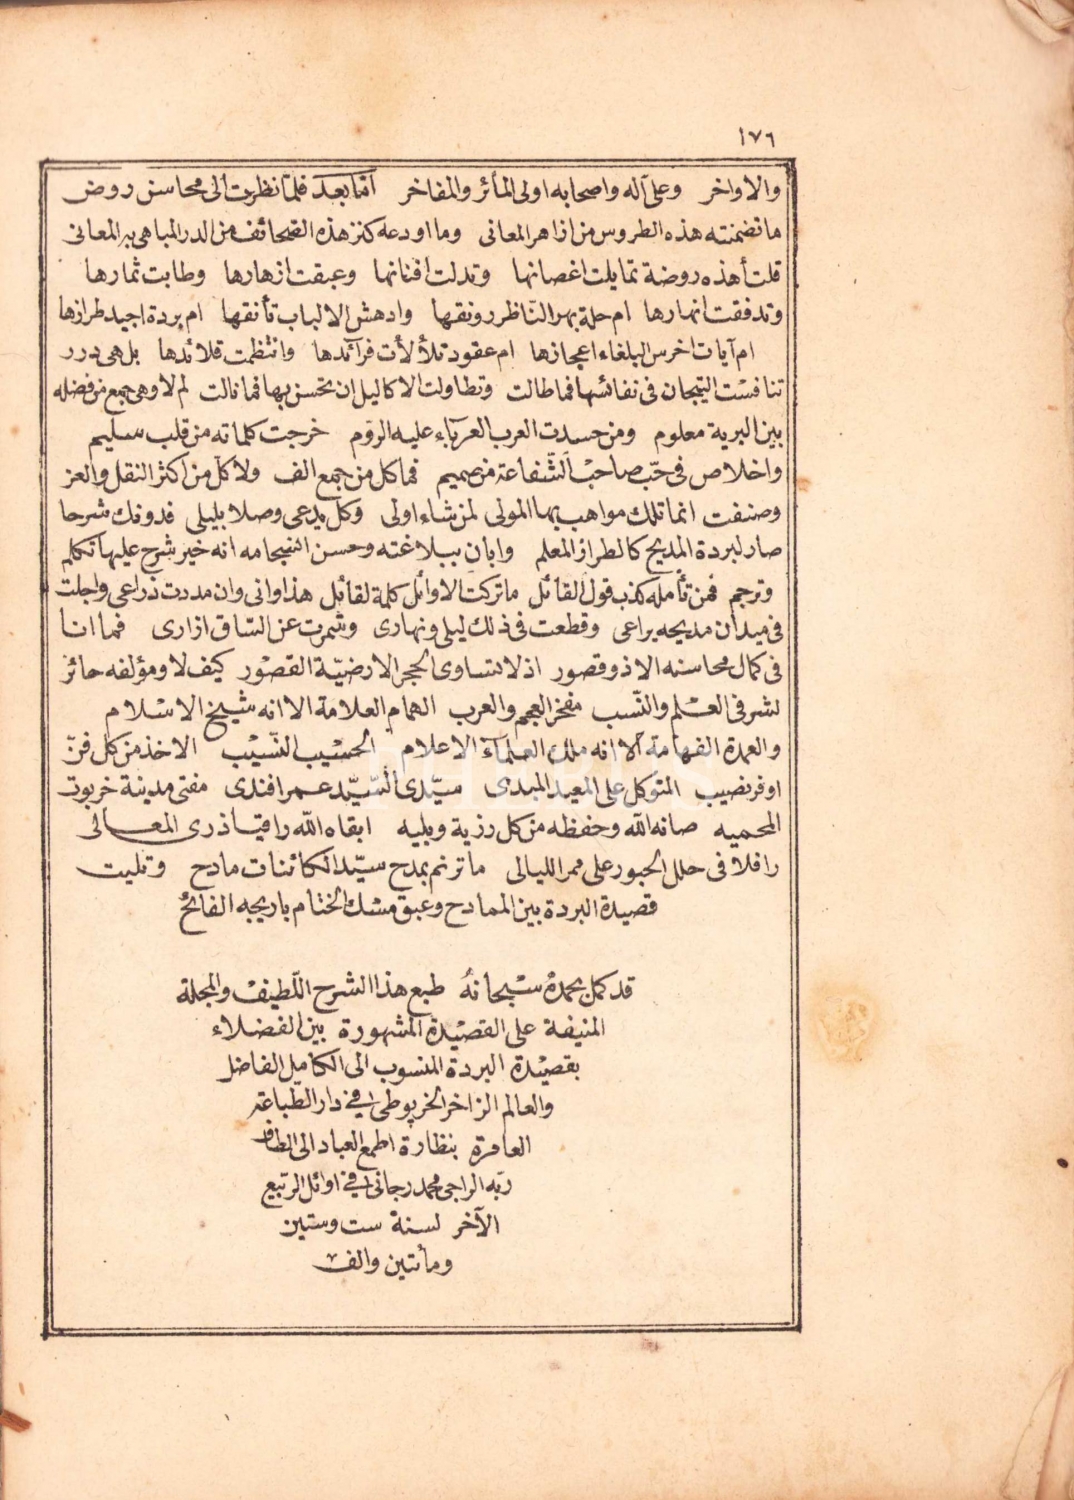 ١٧٦
والاواخر وعلى آله واصحابه اولى المأثر والمفاخر امّا بعد فلمّا نظرت الى محاسن روض
ما تضمنته هذه الطروس من ازاهر المعانى وما اودعه كنز هذه الصّحائف من الدر المباهى به المعانى
قلت أهذه روضة تمايلت اغصانها وتدلت افنانها وعبقت ازهارها وطابت ثمارها
وتدفقت انهارها ام حلة بهر النّاظر رونقها وادهش الالباب تأنقها ام بردة اجيد طرازها
ام آيات اخرس البلغاء اعجازها ام عقود تلألأت فرآئدها وانتظمت قلائدها بل هى درر
تنافست التيجان فى نفائسها فما طالت وتطاولت الاكاليل ان تحسن بها فما نالت لم لا وهى جمع من فضله
بين البرية معلوم ومن حسدت العرب العربآء عليه الرّوم خرجت كلماته من قلب سليم
واخلاص فى حبّ صاحب الشّفاعة من صميم فما كل من جمع الف ولا كل من اكثر النقل والعز
وصنفت انما تلك مواهب بها المولى لمن شاء اولى وكل يدعى وصلا بليلى فدونك شرحا
صار لبردة المديح كالطراز المعلم وابان ببلاغته وحسن انسجامه انه خير شرح عليها تكلم
وترجم فمن تأمله كذب قول القائل ما تركت الاوائل كلمة لقائل هذا وانى وان مددت ذراعى واجلت
فى ميدان مديحه يراعى وقطعت فى ذلك ليلى ونهارى وشمرت عن السّاق ازارى فما انا
فى كمال محاسنه الا ذو قصور اذ لا تساوى الحجر الارضيّة القصور كيف لا ومؤلفه حائز
لشرفى العلم والنّسب مفخر العجم والعرب الهمام العلامة الا انه شيخ الاسلام
والعمدة الفهامة الا انه ملك العلمآء الاعلام الحسيب النّسيب الاخذ من كل فنّ
اوفر نصيب المتوكل على المعيد المبدى سيّدى السّيّد عمر افندى مفتى مدينة خربوت
المحميه صانه الله وحفظه من كل رزية وبليه ابقاه الله راقيا ذرى المعالى
رافلا فى حلل الحبور على ممر الليالى ما ترنم بمدح سيّد الكائنات مادح وتليت
قصيدة البردة بين الممادح وعبق مسك الختام باريجه الفائح
قد كمل بحمده سبحانه طبع هذا الشرح اللّطيف والمجلة
المنيفة على القصيدة المشهورة بين الفضلاء
بقصيدة البردة المنسوب الى الكامل الفاضل
والعالم الزاخر الخرپوطى فى دار الطباعة
العامرة بنظارة اطمع العباد الى الطاف
ربّه الراجى محمد رجائى فى اوائل الربيع
الآخر لسنة ست وستين
ومأتين والف